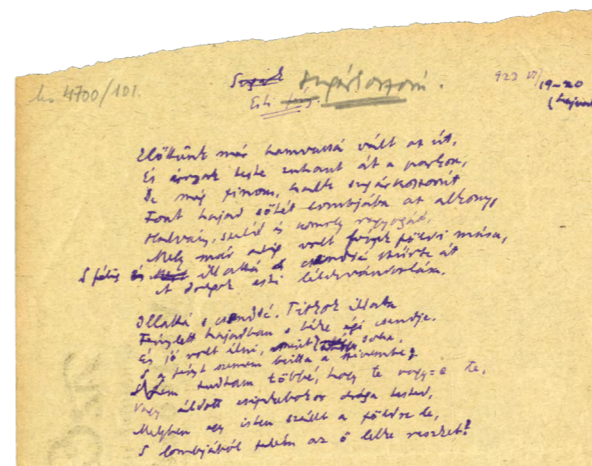 ks 4700/101.
Sugár sugárkoszorú.
Esti
923 VI/19-20
Előttünk már hamvassá vált az út,
És árnyak teste zuhant át a parkon,
De még finom, halk sugárkoszorút
Font hajad sötét lombjába az alkony,
Halvány, szelíd és komoly ragyogást,
Mely már alig volt fények földi mása,
S félig illattá s csenddé szűrte át
A dolgok esti lélekvándorlása.
Illattá s csenddé. Titkok illata
Fénylett hajadban s béke égi csendje.
És jó volt élni, mint soha,
S a fényt szemem beitta a szivembe
Nem tudtam többé, hogy te vagy-e te,
Vagy áldott csipkebokor drága tested,
Melyben egy isten szállt a földre le,
S lombjából felém az ő lelke reszket?